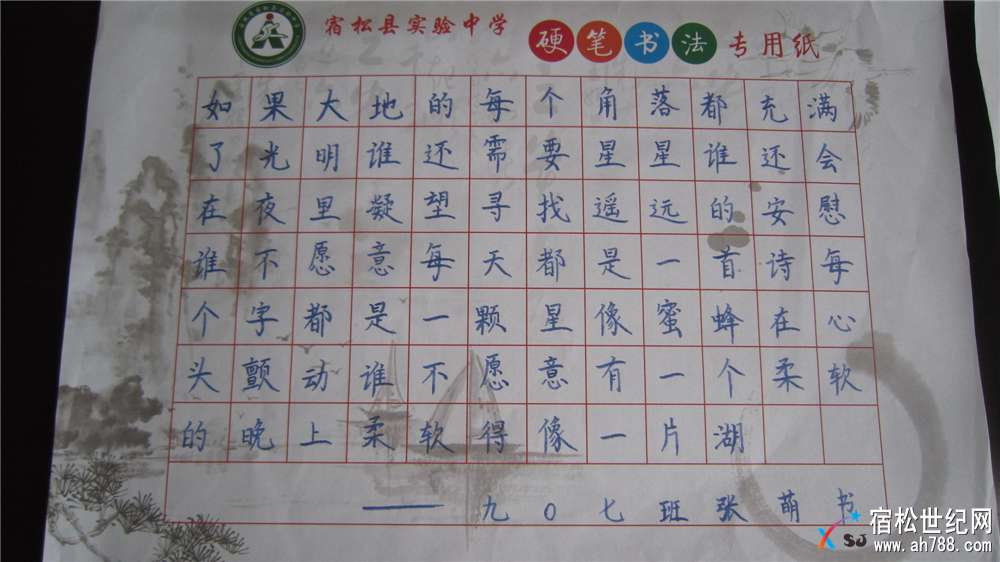 宿松县实验中学 硬笔书法 专用纸
如果大地的每个角落都充满
了光明谁还需要星星谁还会
在夜里凝望寻找遥远的安慰
谁不愿意每天都是一首诗每
个字都是一颗星像蜜蜂在心
头颤动谁不愿意有一个柔软
的晚上柔软得像一片湖
——九〇七班张萌书
SJ 宿松世纪网
www.ah788.com